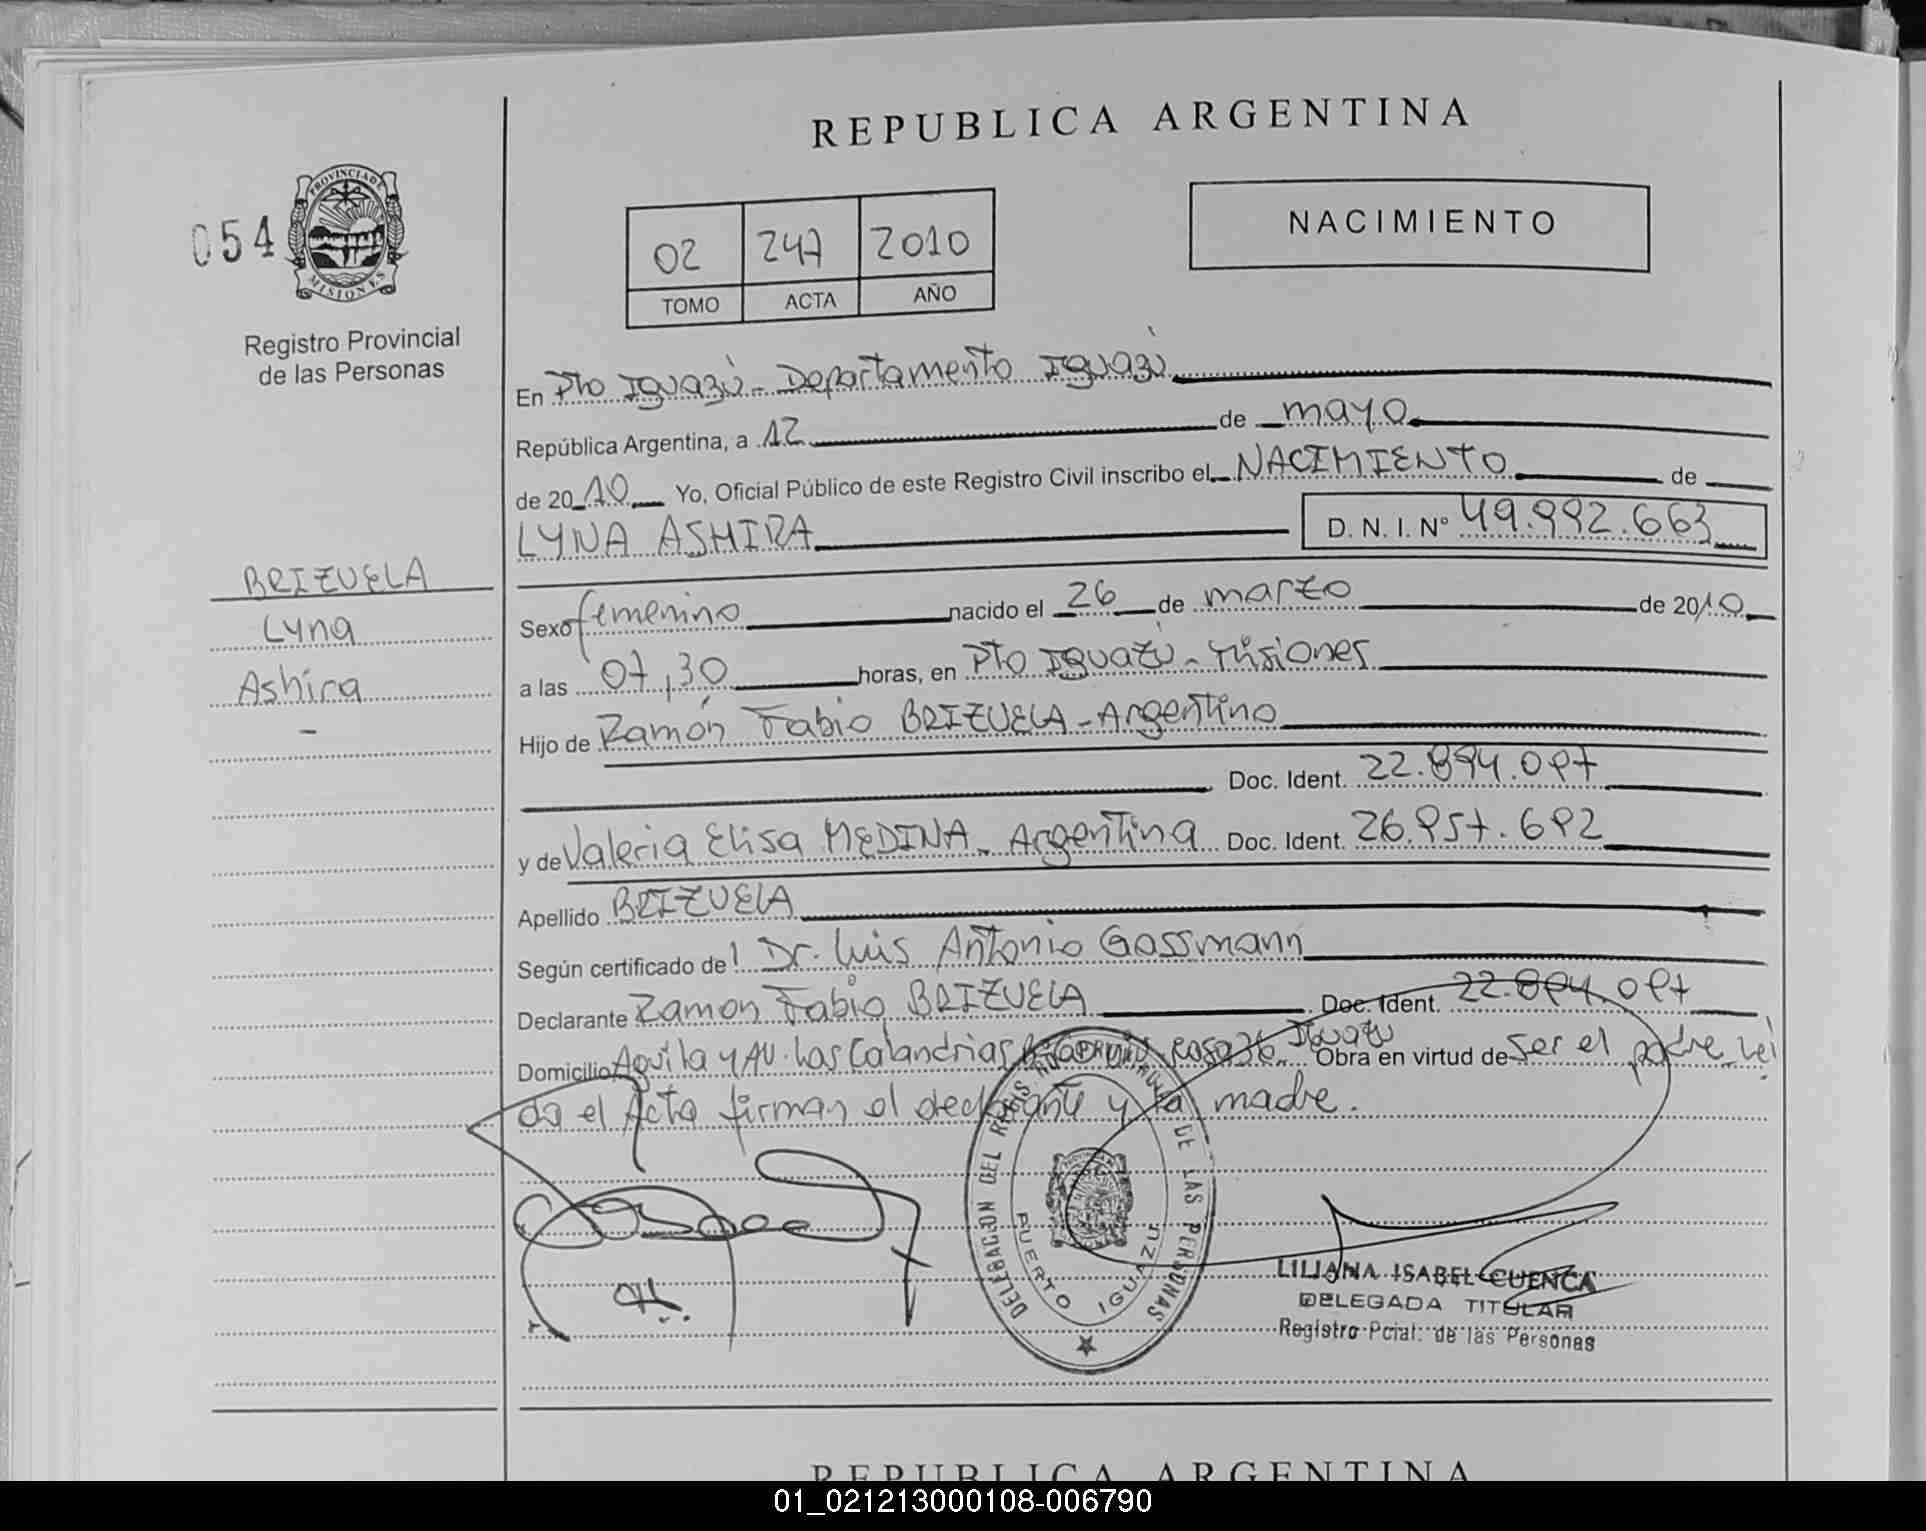 REPUBLICA ARGENTINA
054
PROVINCIA DE
MISIONES
Registro Provincial
de las Personas
02 247 2010
TOMO ACTA AÑO
NACIMIENTO
En Pto Iguazú - Departamento Iguazú
República Argentina, a 12 de mayo
de 2010 Yo, Oficial Público de este Registro Civil inscribo el NACIMIENTO de
LYNA ASHIRA D. N. I. N° 49.992.663
BRIZUELA
Lyna
Ashira
-
Sexo femenino nacido el 26 de marzo de 2010
a las 07,30 horas, en Pto Iguazú - Misiones
Hijo de Ramón Fabio BRIZUELA - Argentino
Doc. Ident. 22.894.097
y de Valeria Elisa MEDINA - Argentina Doc. Ident. 26.957.692
Apellido BRIZUELA
Según certificado del Dr. Luis Antonio Gassmann
Declarante Ramon Fabio BRIZUELA Doc. Ident. 22.894.097
Domicilio Aguila y AV. Las Calandrias Iguazu Obra en virtud de ser el padre. Leí
da el Acta firman el declarante y la madre.
DELEGACION DEL REGISTRO PROVINCIAL DE LAS PERSONAS
PUERTO IGUAZU
LILIANA ISABEL CUENCA
DELEGADA TITULAR
Registro Pcial. de las Personas
REPUBLICA ARGENTINA
01_021213000108-006790